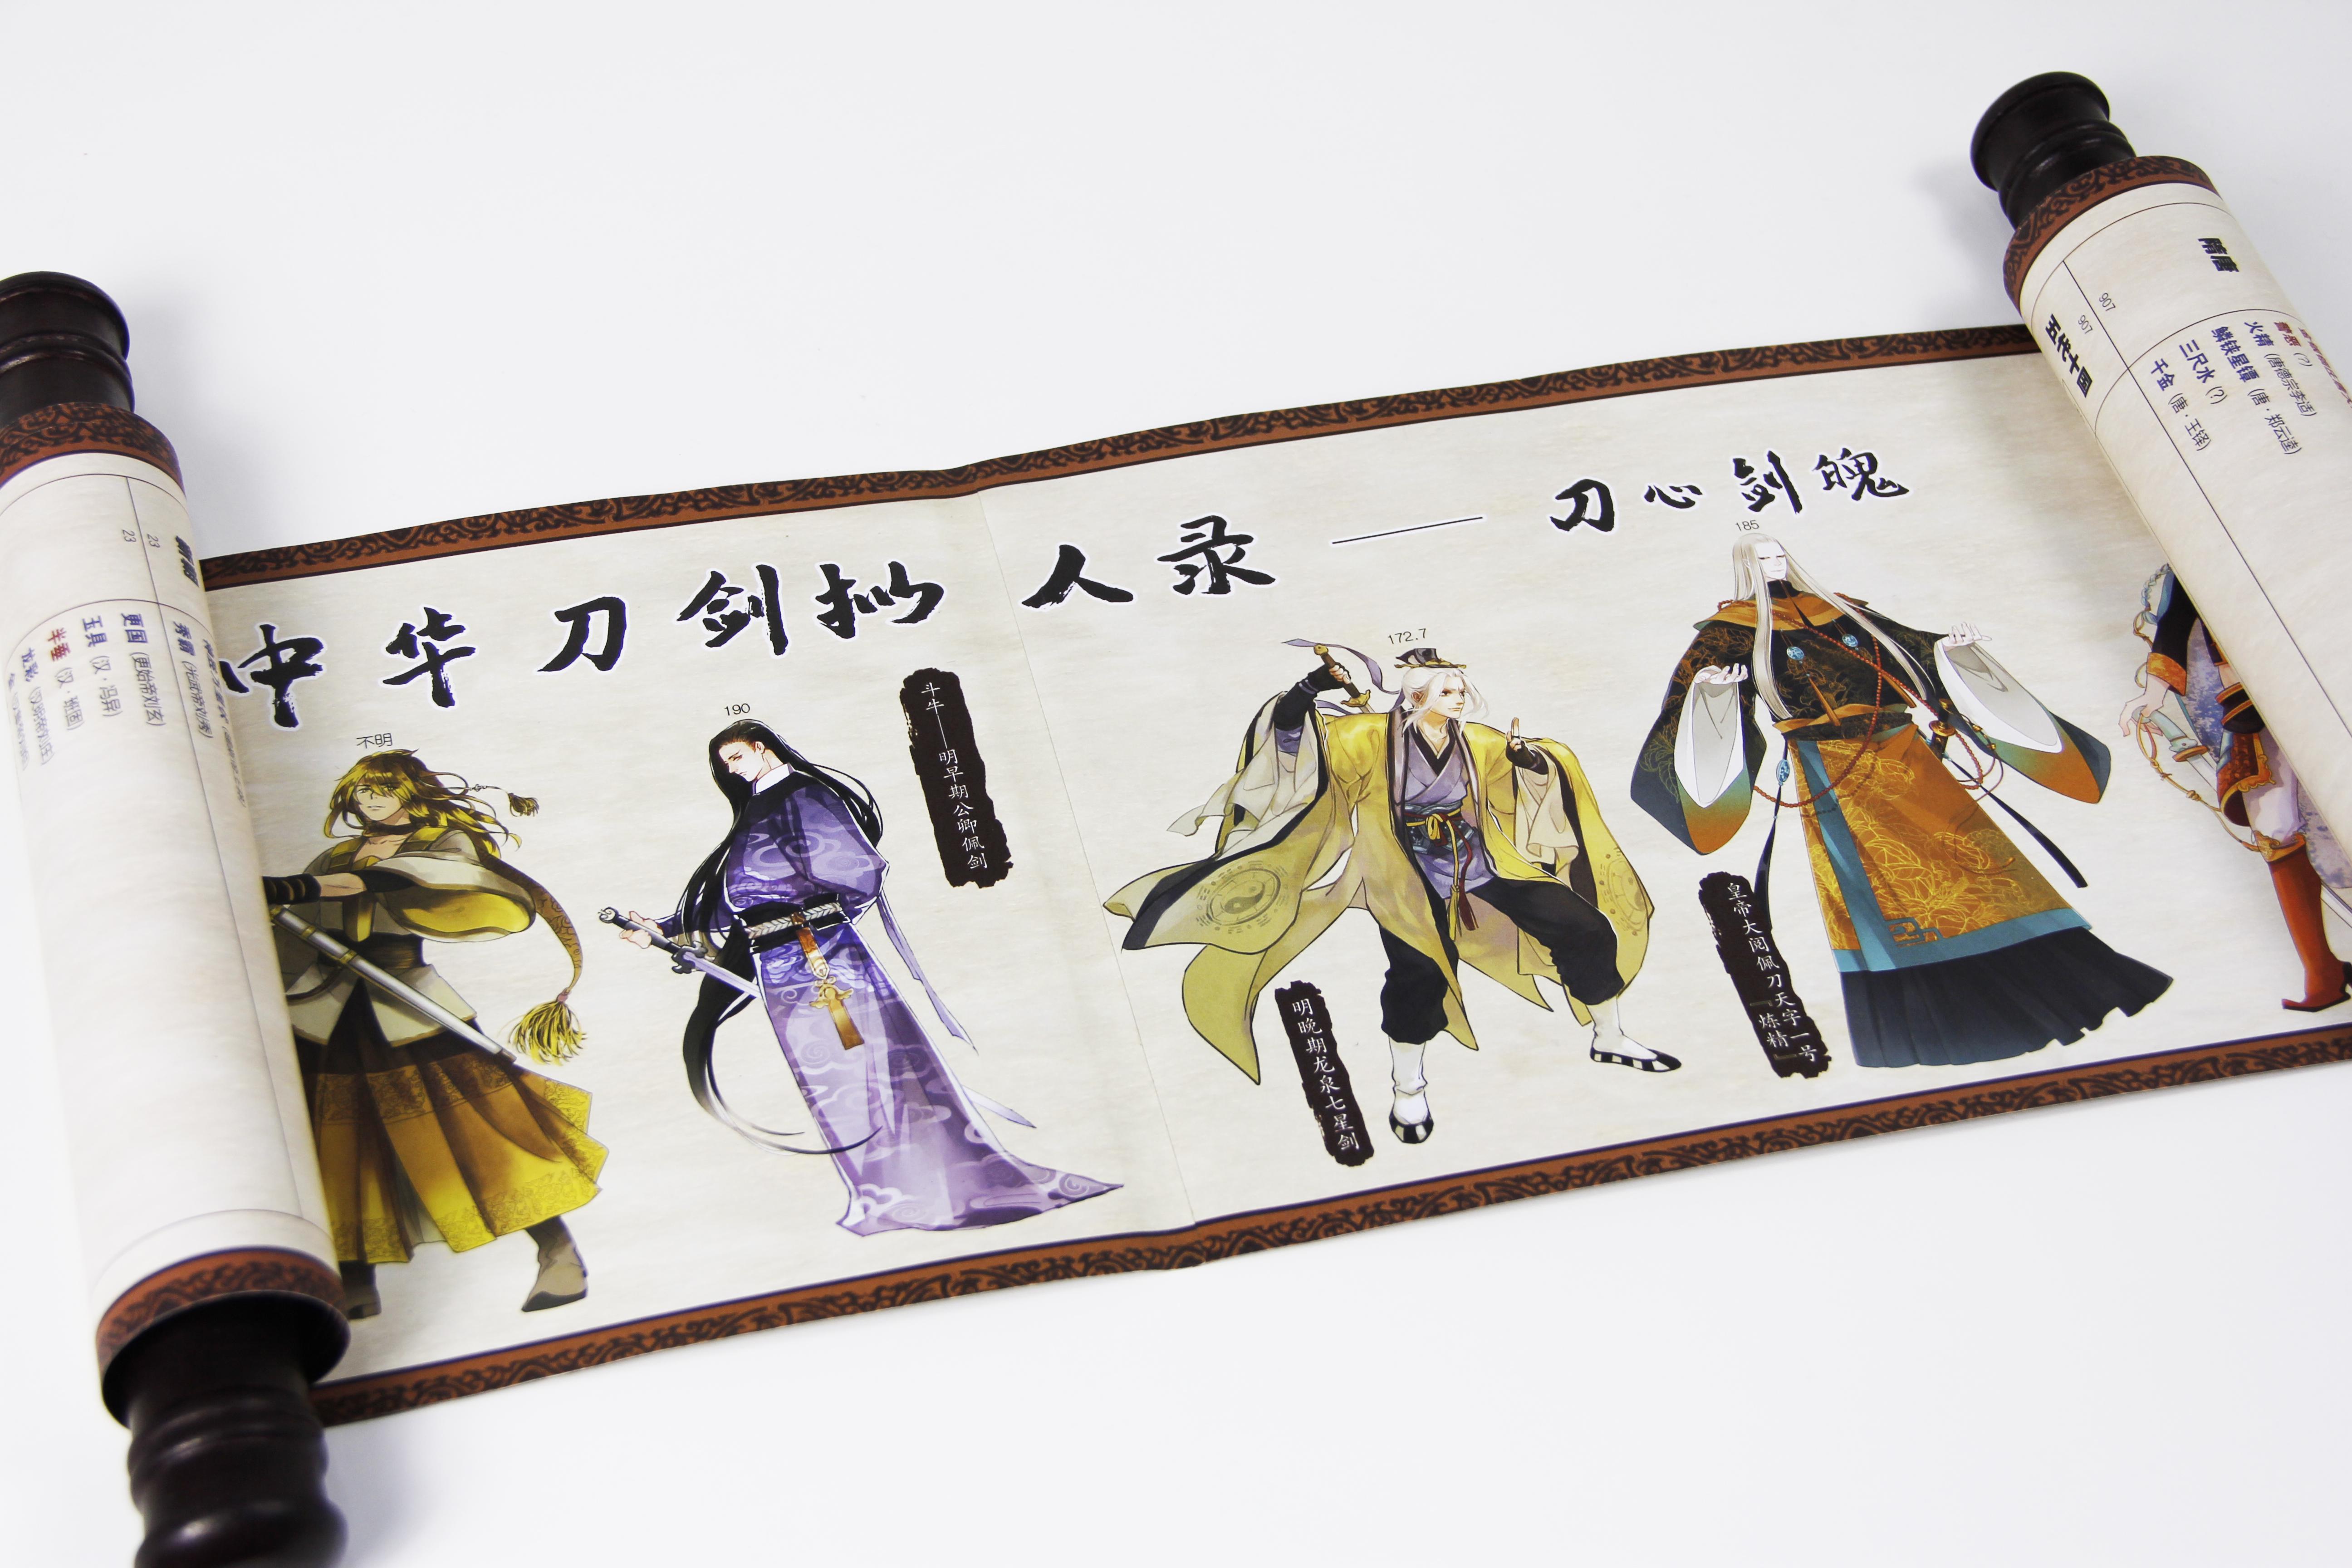 中华刀剑拟人录——刀心剑魄
不明
190
斗牛——明早期公卿佩剑
172.7
明晚期龙泉七星剑
185
皇帝大阅佩刀天字一号
『炼精』
23
23
秀霸
更国 (更始帝刘玄)
玉具 (汉·冯异)
半垂
隋唐
907
907
五代十国
火精 (唐德宗李适)
鳞铁星镡 (唐·郑云逵)
三尺水 (?)
千金 (唐·王铎)